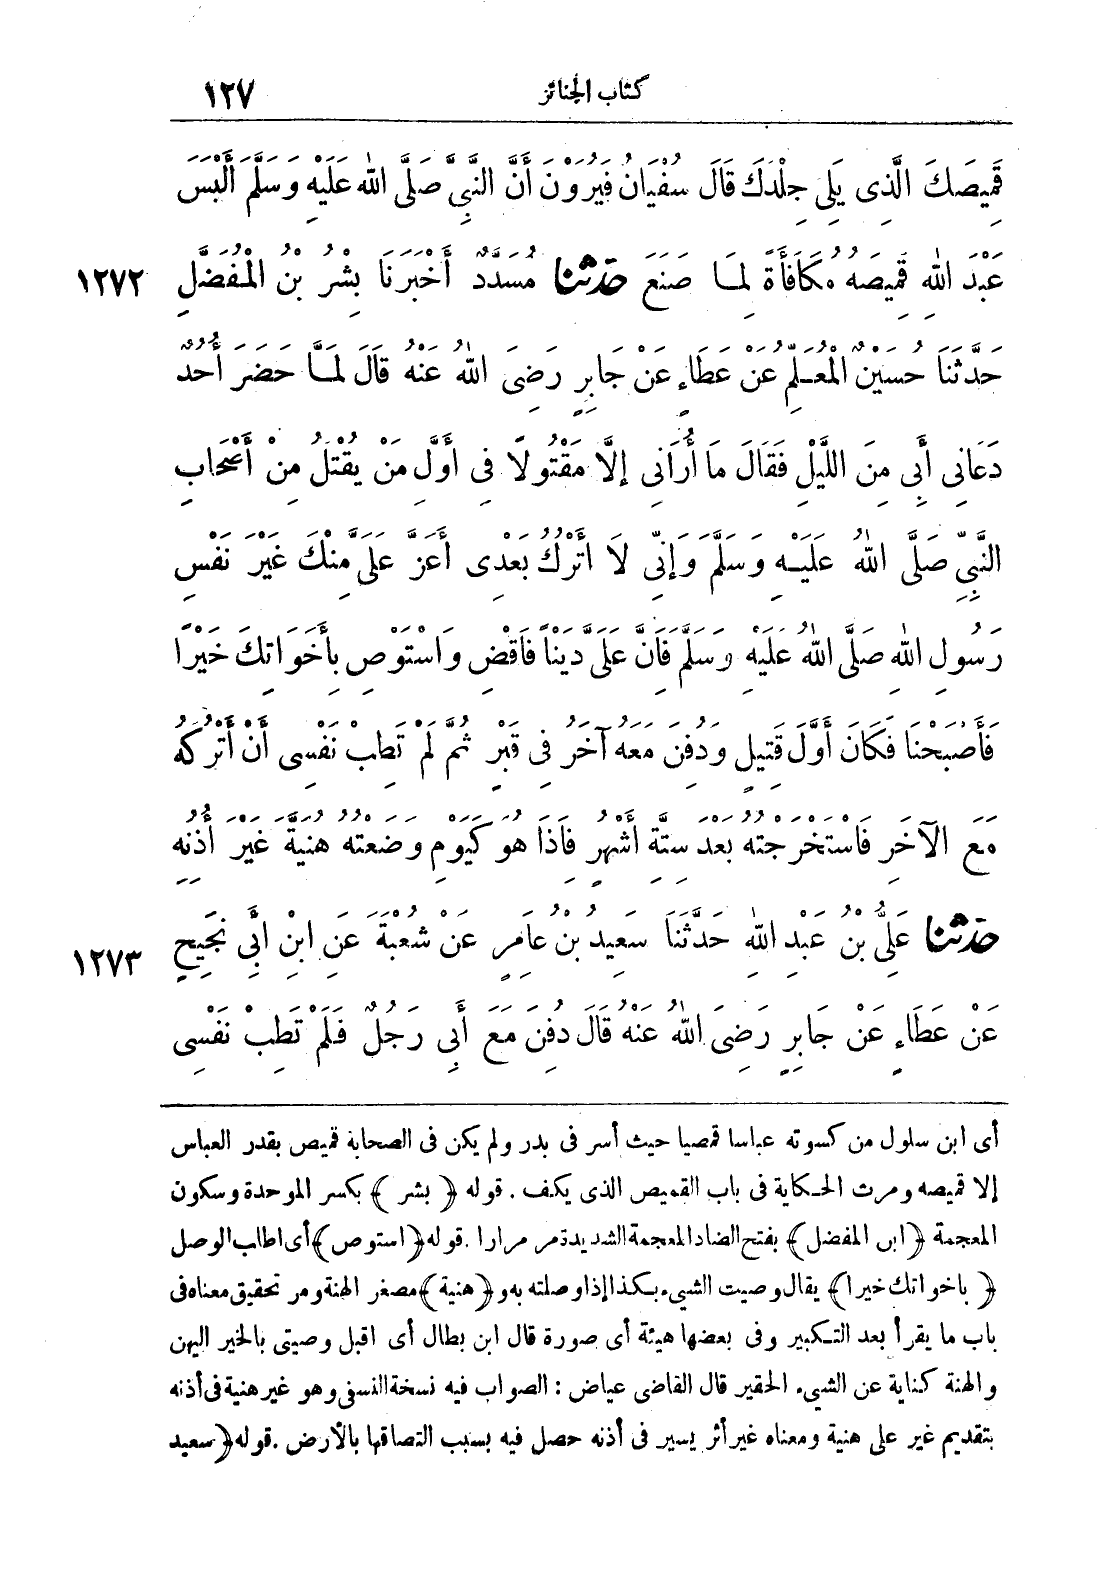 كتاب الجنائز ١٢٧
قَمِيصَكَ الَّذِى يَلِى جِلْدَكَ قَالَ سُفْيَانُ فَيَرَوْنَ أَنَّ النَّبِىَّ صَلَّى اللهُ عَلَيْهِ وَسَلَّمَ أَلْبَسَ
عَبْدَ اللهِ قَمِيصَهُ مُكَافَأَةً لِمَا صَنَعَ حدثنا مُسَدَّدٌ أَخْبَرَنَا بِشْرُ بْنُ الْمُفَضَّلِ ١٢٧٢
حَدَّثَنَا حُسَيْنٌ الْمُعَلِّمُ عَنْ عَطَاءٍ عَنْ جَابِرٍ رَضِىَ اللهُ عَنْهُ قَالَ لَمَّا حَضَرَ أُحُدٌ
دَعَانِى أَبِى مِنَ اللَّيْلِ فَقَالَ مَا أُرَانِى إِلَّا مَقْتُولًا فِى أَوَّلِ مَنْ يُقْتَلُ مِنْ أَصْحَابِ
النَّبِىِّ صَلَّى اللهُ عَلَيْهِ وَسَلَّمَ وَإِنِّى لَا أَتْرُكُ بَعْدِى أَعَزَّ عَلَىَّ مِنْكَ غَيْرَ نَفْسِ
رَسُولِ اللهِ صَلَّى اللهُ عَلَيْهِ وَسَلَّمَ فَإِنَّ عَلَىَّ دَيْنًا فَاقْضِ وَاسْتَوْصِ بِأَخَوَاتِكَ خَيْرًا
فَأَصْبَحْنَا فَكَانَ أَوَّلَ قَتِيلٍ وَدُفِنَ مَعَهُ آخَرُ فِى قَبْرٍ ثُمَّ لَمْ تَطِبْ نَفْسِى أَنْ أَتْرُكَهُ
مَعَ الْآخَرِ فَاسْتَخْرَجْتُهُ بَعْدَ سِتَّةِ أَشْهُرٍ فَإِذَا هُوَ كَيَوْمِ وَضَعْتُهُ هُنَيَّةً غَيْرَ أُذُنِهِ
حدثنا عَلِىُّ بْنُ عَبْدِ اللهِ حَدَّثَنَا سَعِيدُ بْنُ عَامِرٍ عَنْ شُعْبَةَ عَنِ ابْنِ أَبِى نَجِيحٍ ١٢٧٣
عَنْ عَطَاءٍ عَنْ جَابِرٍ رَضِىَ اللهُ عَنْهُ قَالَ دُفِنَ مَعَ أَبِى رَجُلٌ فَلَمْ تَطِبْ نَفْسِى
أى ابن سلول من كسوته عباسا قمصيا حيث أسر فى بدر ولم يكن فى الصحابة قميص بقدر العباس
إلا قميصه ومرت الحكاية فى باب القميص الذى يكف . قوله ﴿ بشر ﴾ بكسر الموحدة وسكون
المعجمة ﴿ ابن المفضل ﴾ بفتح الضاد المعجمة الشديدة مر مرارا . قوله ﴿ استوص ﴾ أى اطلب الوصل
﴿ باخواتك خيرا ﴾ يقال وصيت الشىء بكذا إذا وصلته به و﴿ هنية ﴾ مصغر الهنة ومر تحقيق معناه فى
باب ما يقرأ بعد التكبير وفى بعضها هيئة أى صورة قال ابن بطال أى اقبل وصيتى بالخير اليهن
والهنة كناية عن الشىء الحقير قال القاضى عياض : الصواب فيه نسخة النسفى وهو غير هنية فى أذنه
بتقديم غير على هنية ومعناه غير أثر يسير فى أذنه حصل فيه بسبب التصاقها بالأرض . قوله ﴿ سعيد